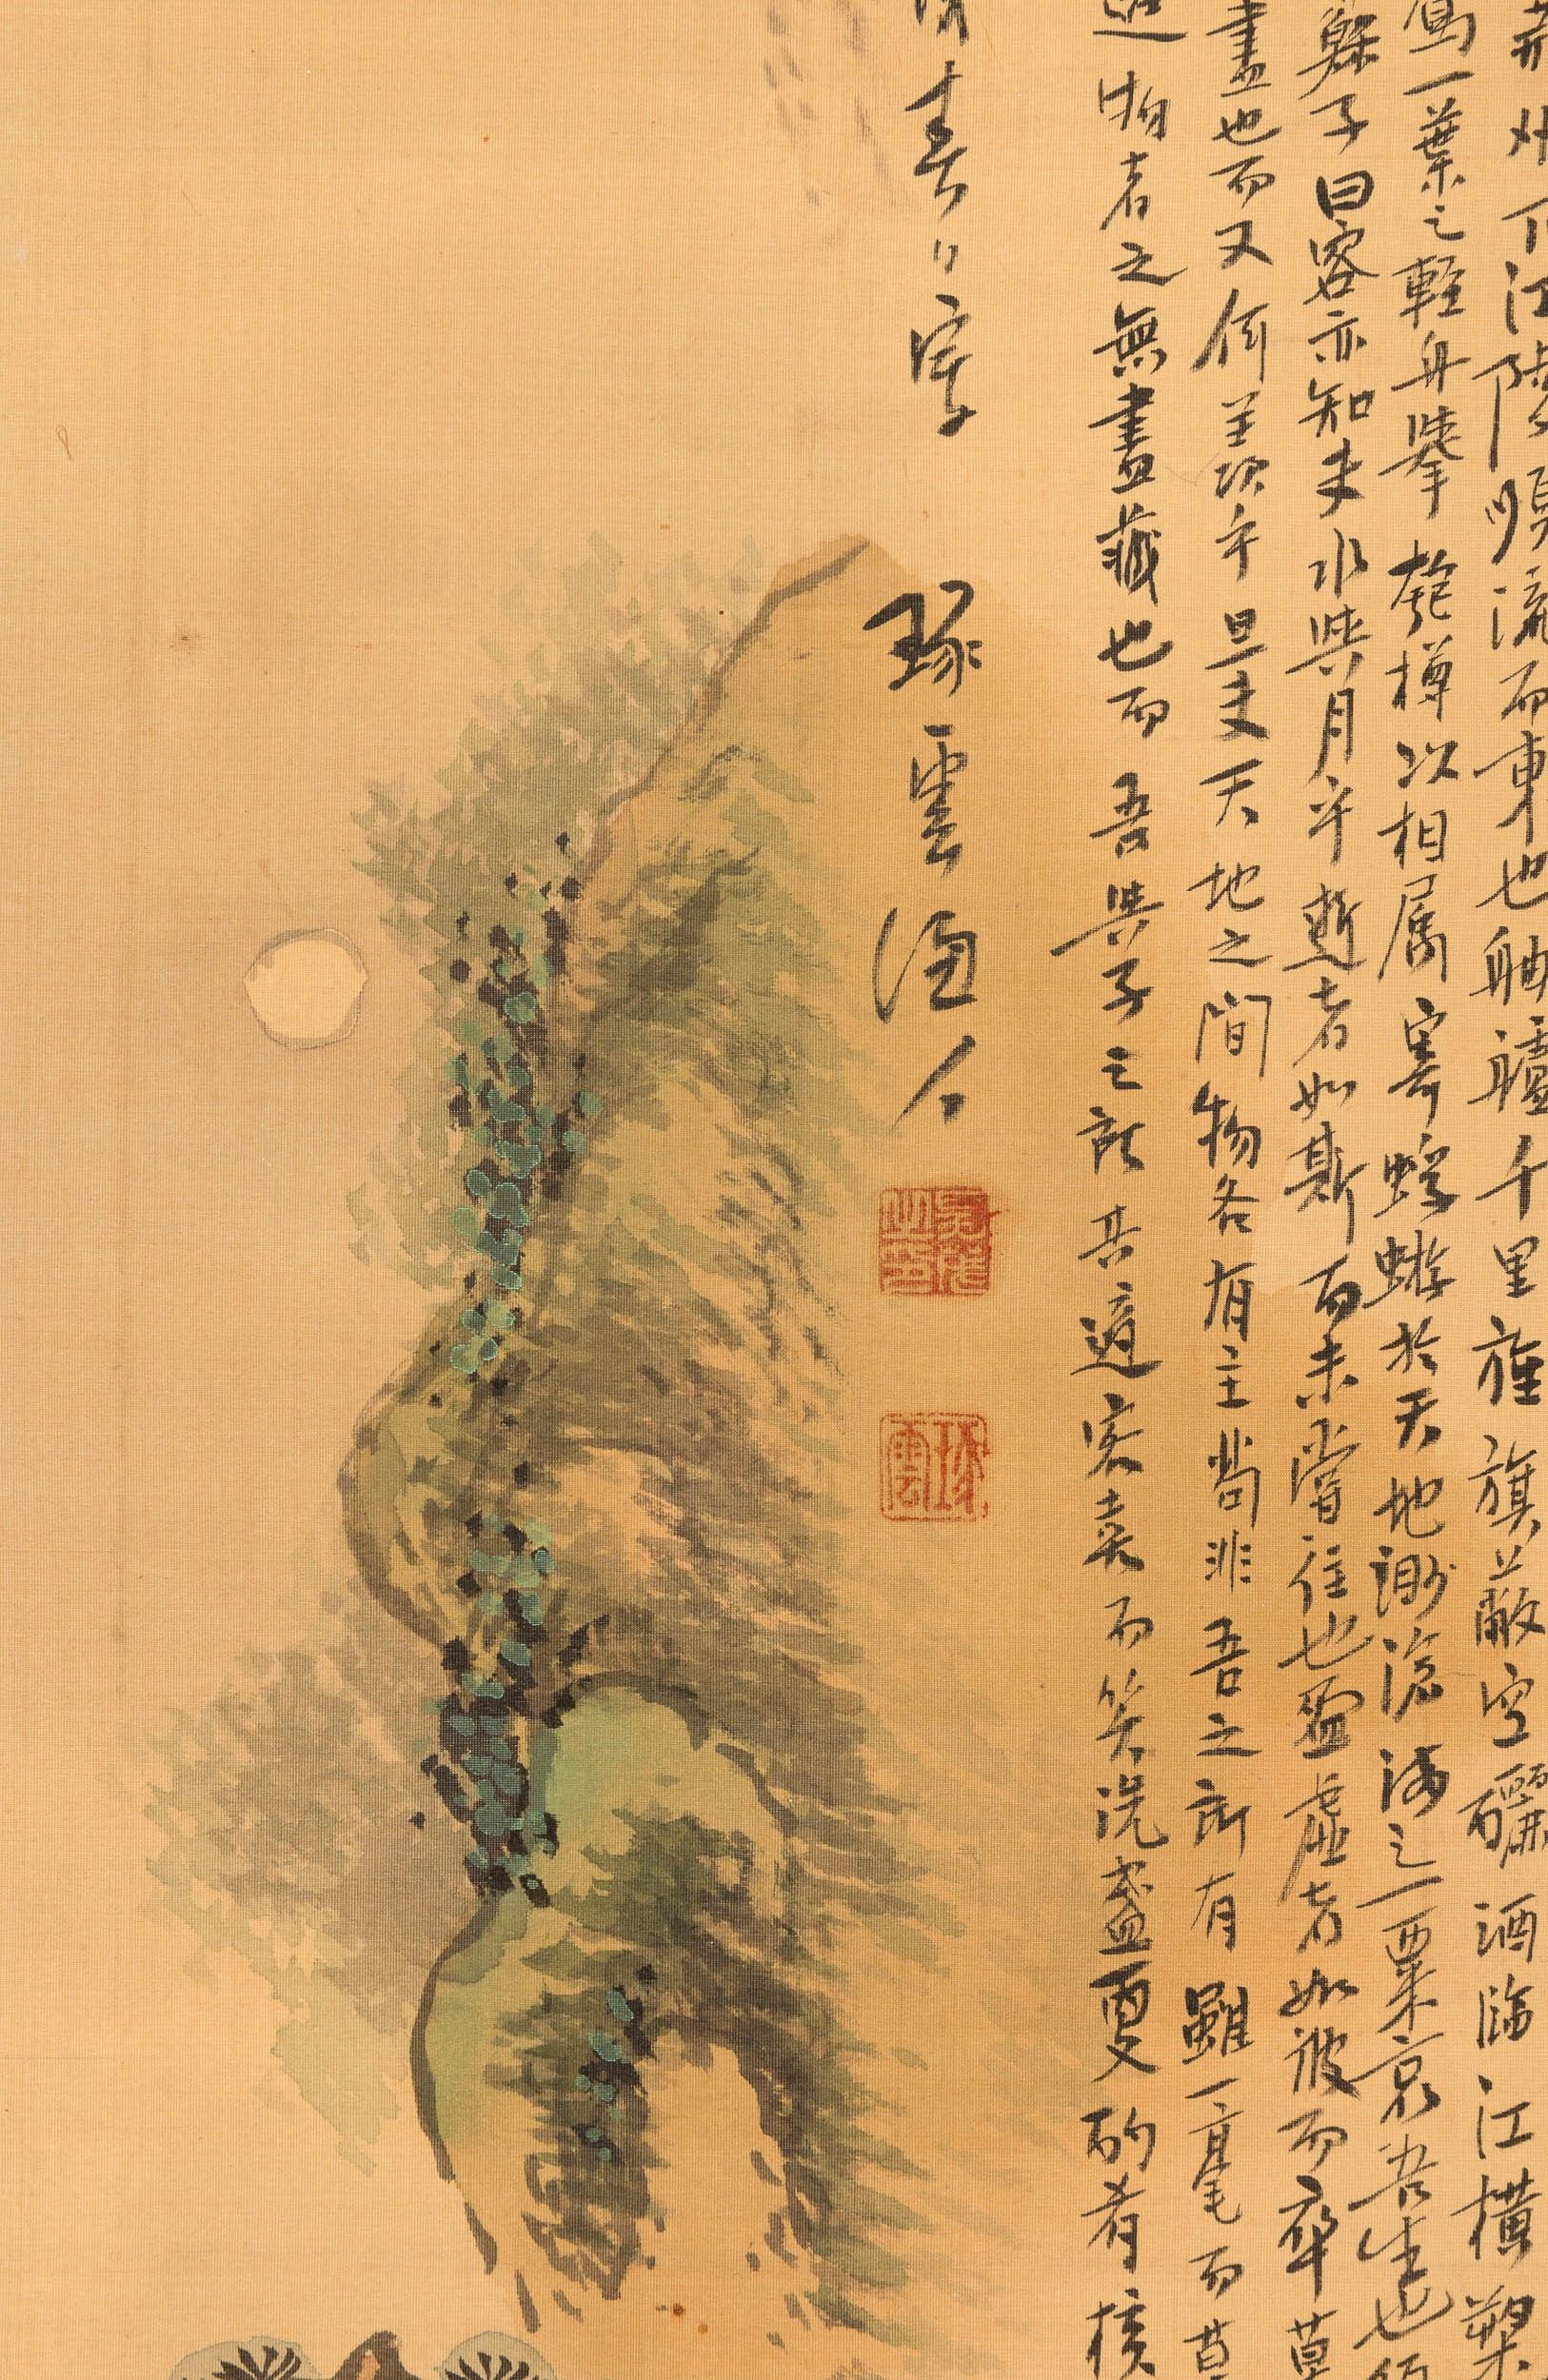 州下江陵順流而東也舳艫千里旌旗蔽空釃酒臨江橫槊
駕一葉之輕舟舉匏樽以相属寄蜉蝣於天地渺滄海之一粟哀吾生也
蘇子曰客亦知夫水與月乎逝者如斯而未嘗往也盈虛者如彼而卒莫
盡也而又何羡乎且夫天地之間物各有主苟非吾之所有雖一毫而莫
造物者之無盡藏也而吾與子之所共適客喜而笑洗盞更酌肴核
春 琢雲 人
之印
琢雲